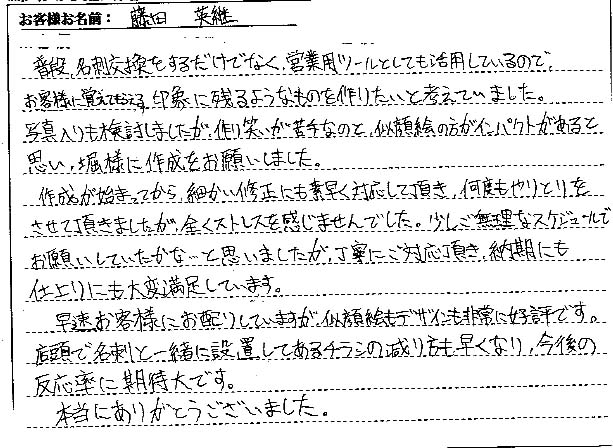 お客様お名前： 藤田 英継
普段、名刺交換をするだけでなく、営業用ツールとしても活用しているので、
お客様に覚えてもらえる、印象に残るようなものを作りたいと考えていました。
写真入りも検討しましたが、作り笑いが苦手なのと、似顔絵の方がインパクトがあると
思い、堀様に作成をお願いしました。
作成が始まってから、細かい修正にも素早く対応して頂き、何度もやりとりを
させて頂きましたが、全くストレスを感じませんでした。少しご無理なスケジュールで
お願いしていたかな…と思いましたが、丁寧にご対応頂き、納期にも
仕上りにも大変満足しています。
早速お客様にお配りしていますが、似顔絵もデザインも非常に好評です。
店頭で名刺と一緒に設置してあるチラシの減り方も早くなり、今後の
反応率に期待大です。
本当にありがとうございました。